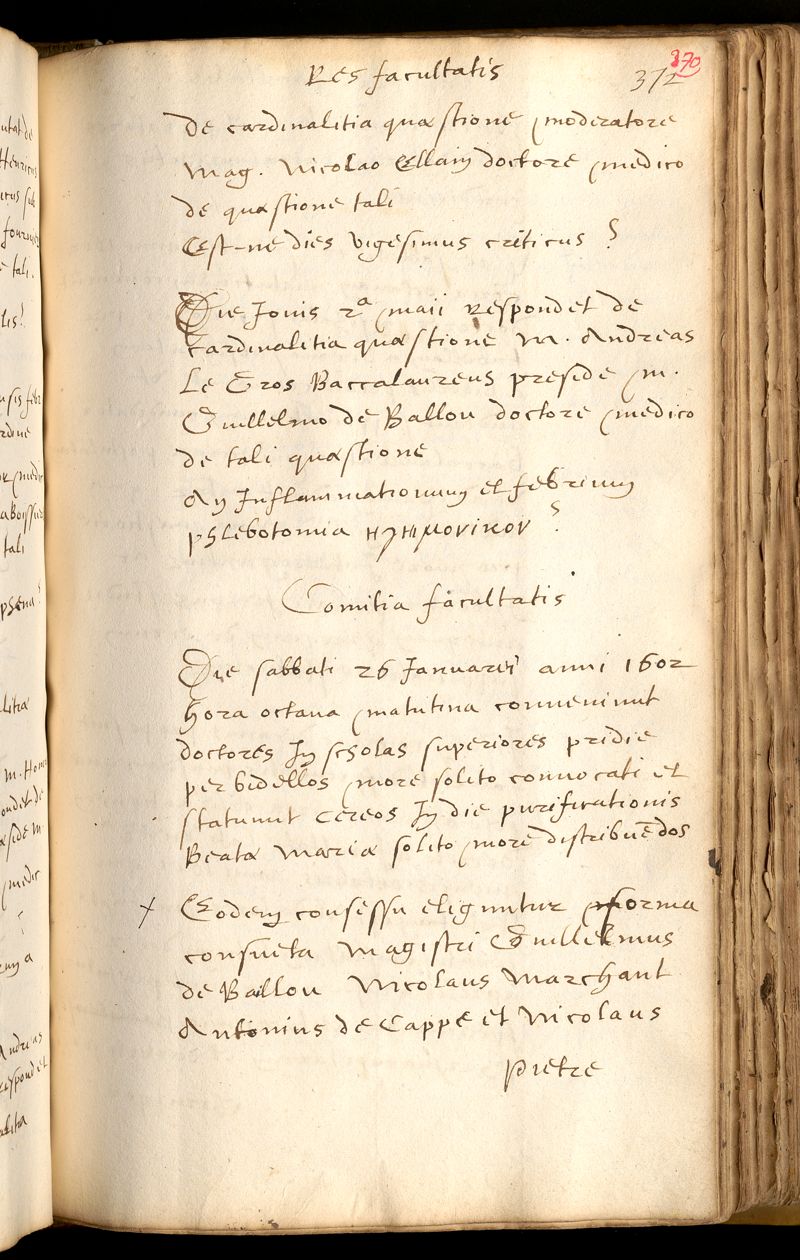 Res facultatis
372
370
de cardinalitia quæstione moderatore
Mag. Nicolao Ellain doctore medico
de quæstione tali
Est-ne dies vigesimus criticus ?
Die Jovis 2ª maii respondet de
cardinalitia quæstione M. Andreas
Le Gros Baccalaureus preside M.
Guillelmo de Ballou doctore medico
de tali quæstione
An Inflammationum et febrium
phlebotomia ηγημονικον ?
Comitia facultatis
Die sabbati 26 Januarii anni 1602
hora octava matutina convenirunt
doctores In scholas superiores pridie
per bidellos more solito convocati et
statuunt cereos In die purificationis
Beatæ Mariæ solito more distribuēdos
+ Eodem consessu eliguntur forma
consueta Magistri Guillelmus
de Ballou Nicolaus Marchant
Antonius de Cappe et Nicolaus
Pietre